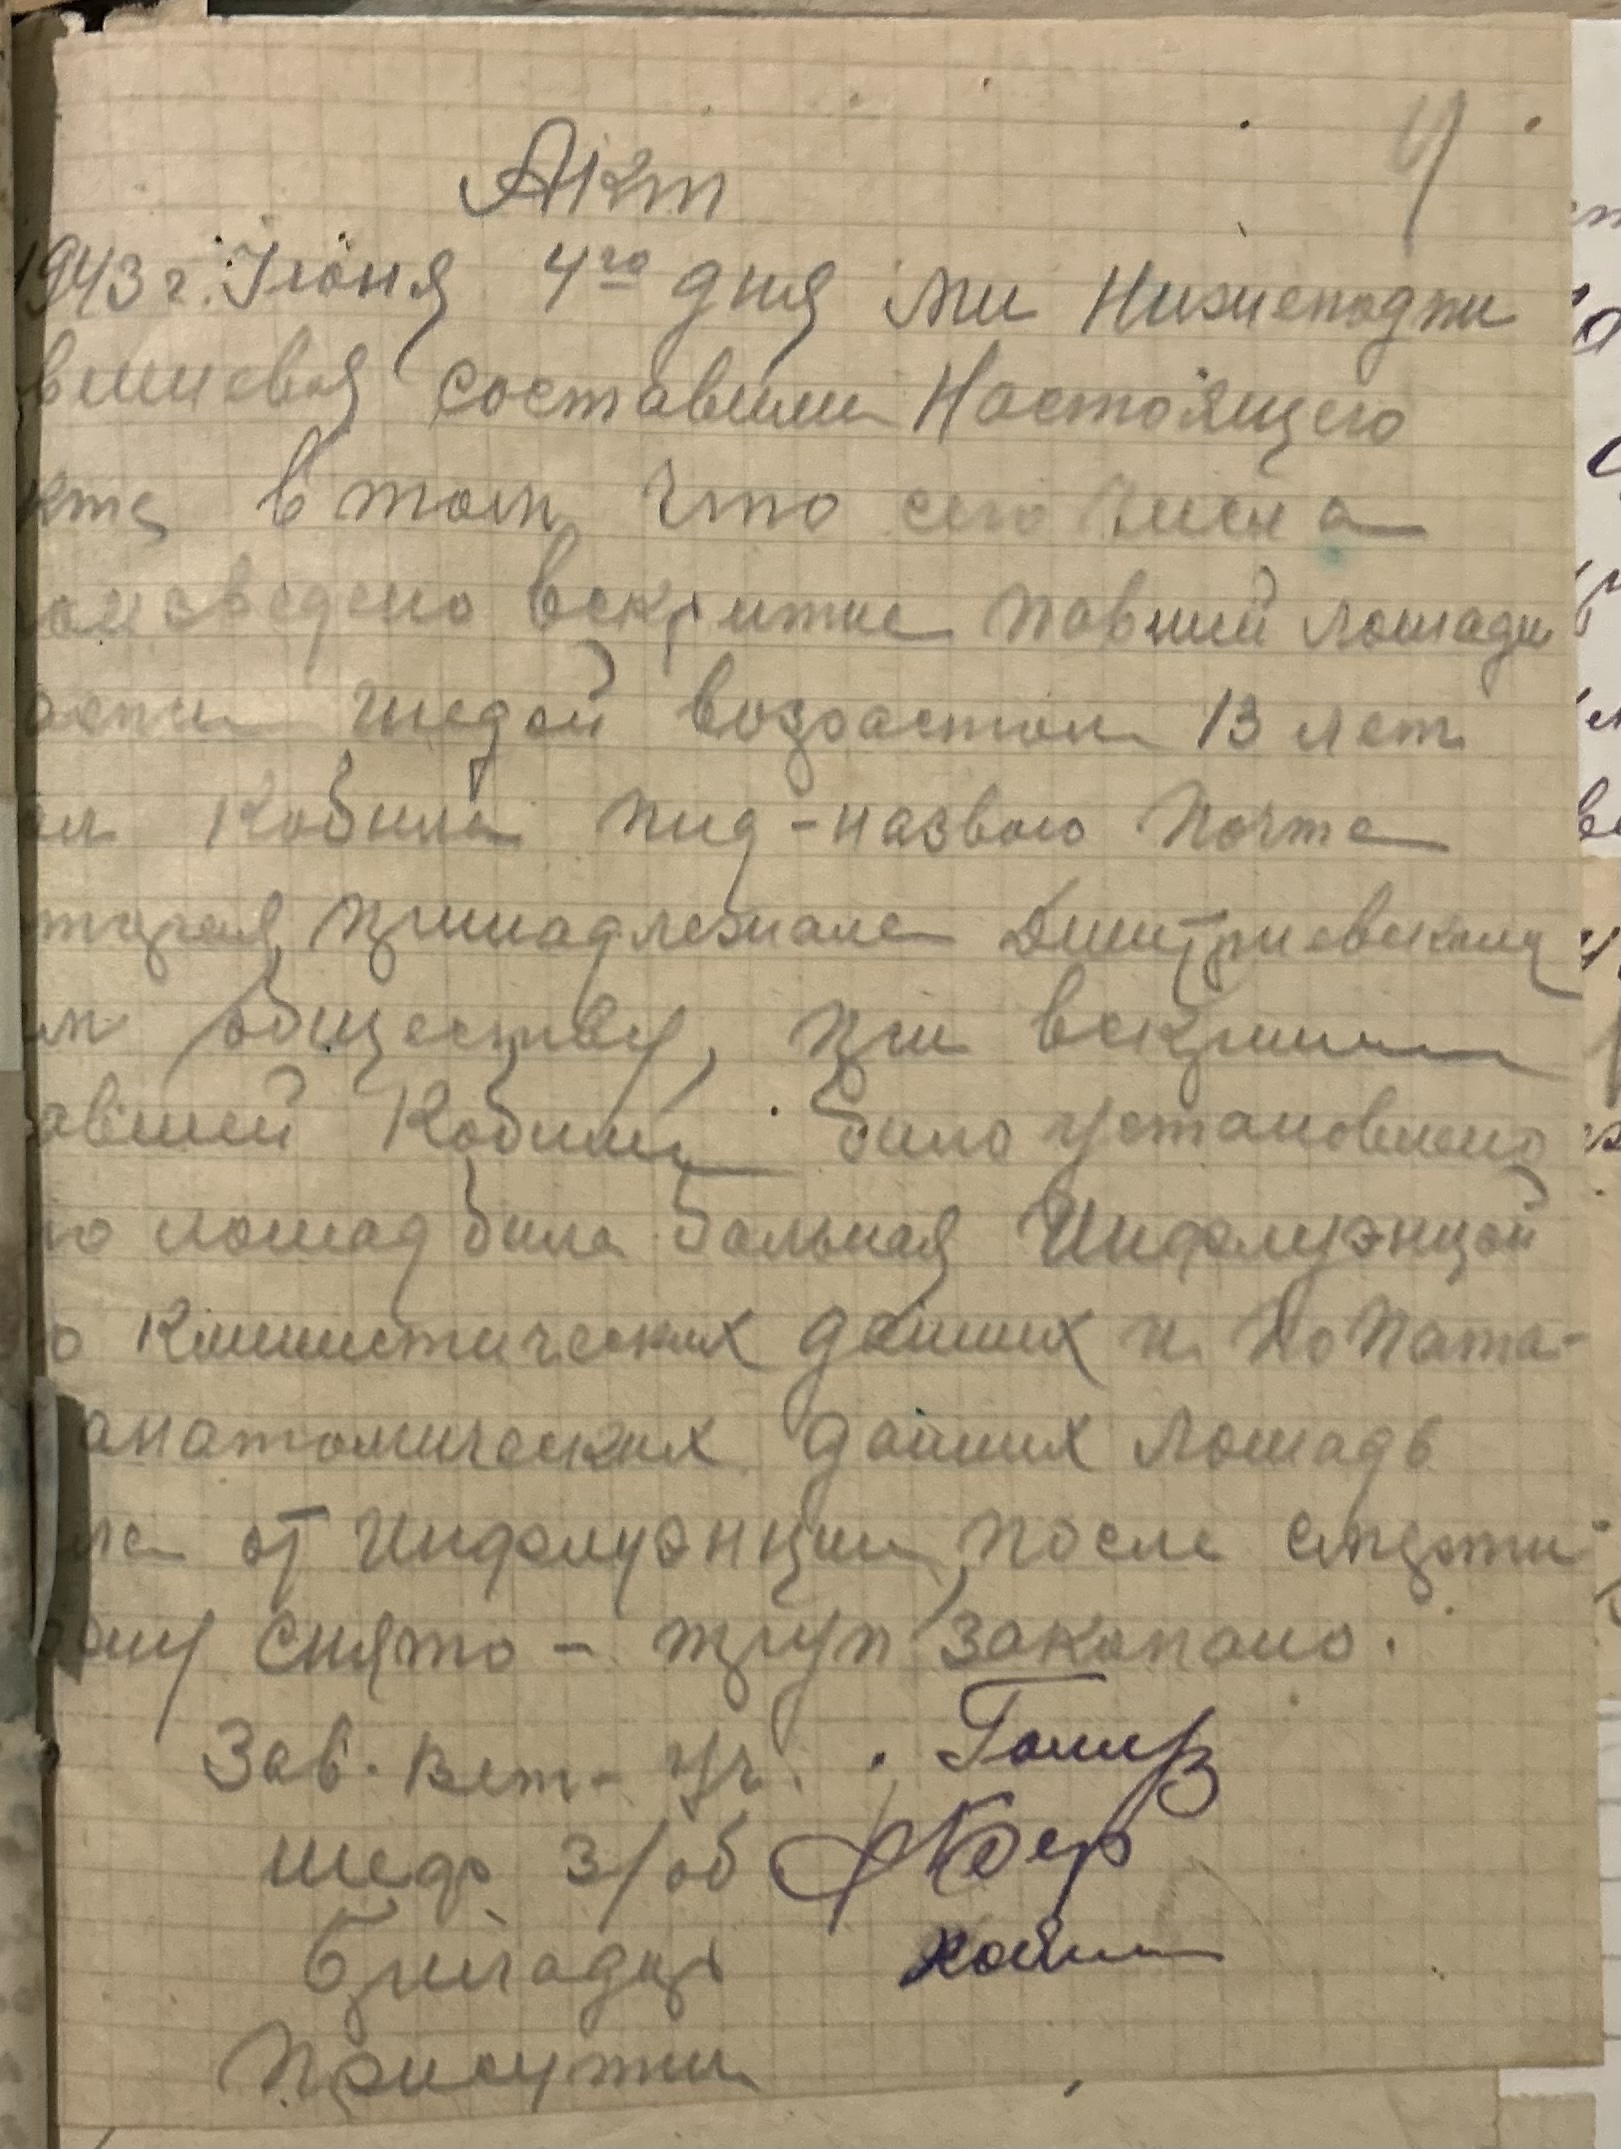 Акт
1943 г. Июня 4го дня ми Нижеподпи
вшиевся составили Настоящего
кта в том что сего числа
оизведено вскритие павший лошади
асти гнедой возрастом 13 лет
ол Кобила пид-назвою Почта
торая принадлежала Дмитриевскому
ем обществу, при вскритии
авшей Кобили било установлено
то лошад била больная Инфлуэнцой
о Клинистических данних и по пата-
анатомических даних лошадь
ла от Инфлуэнции, после смерти
ожу снято - труп закопано.
Зав. Вет. уч.
шеф з/об
Бригадир
Присутни